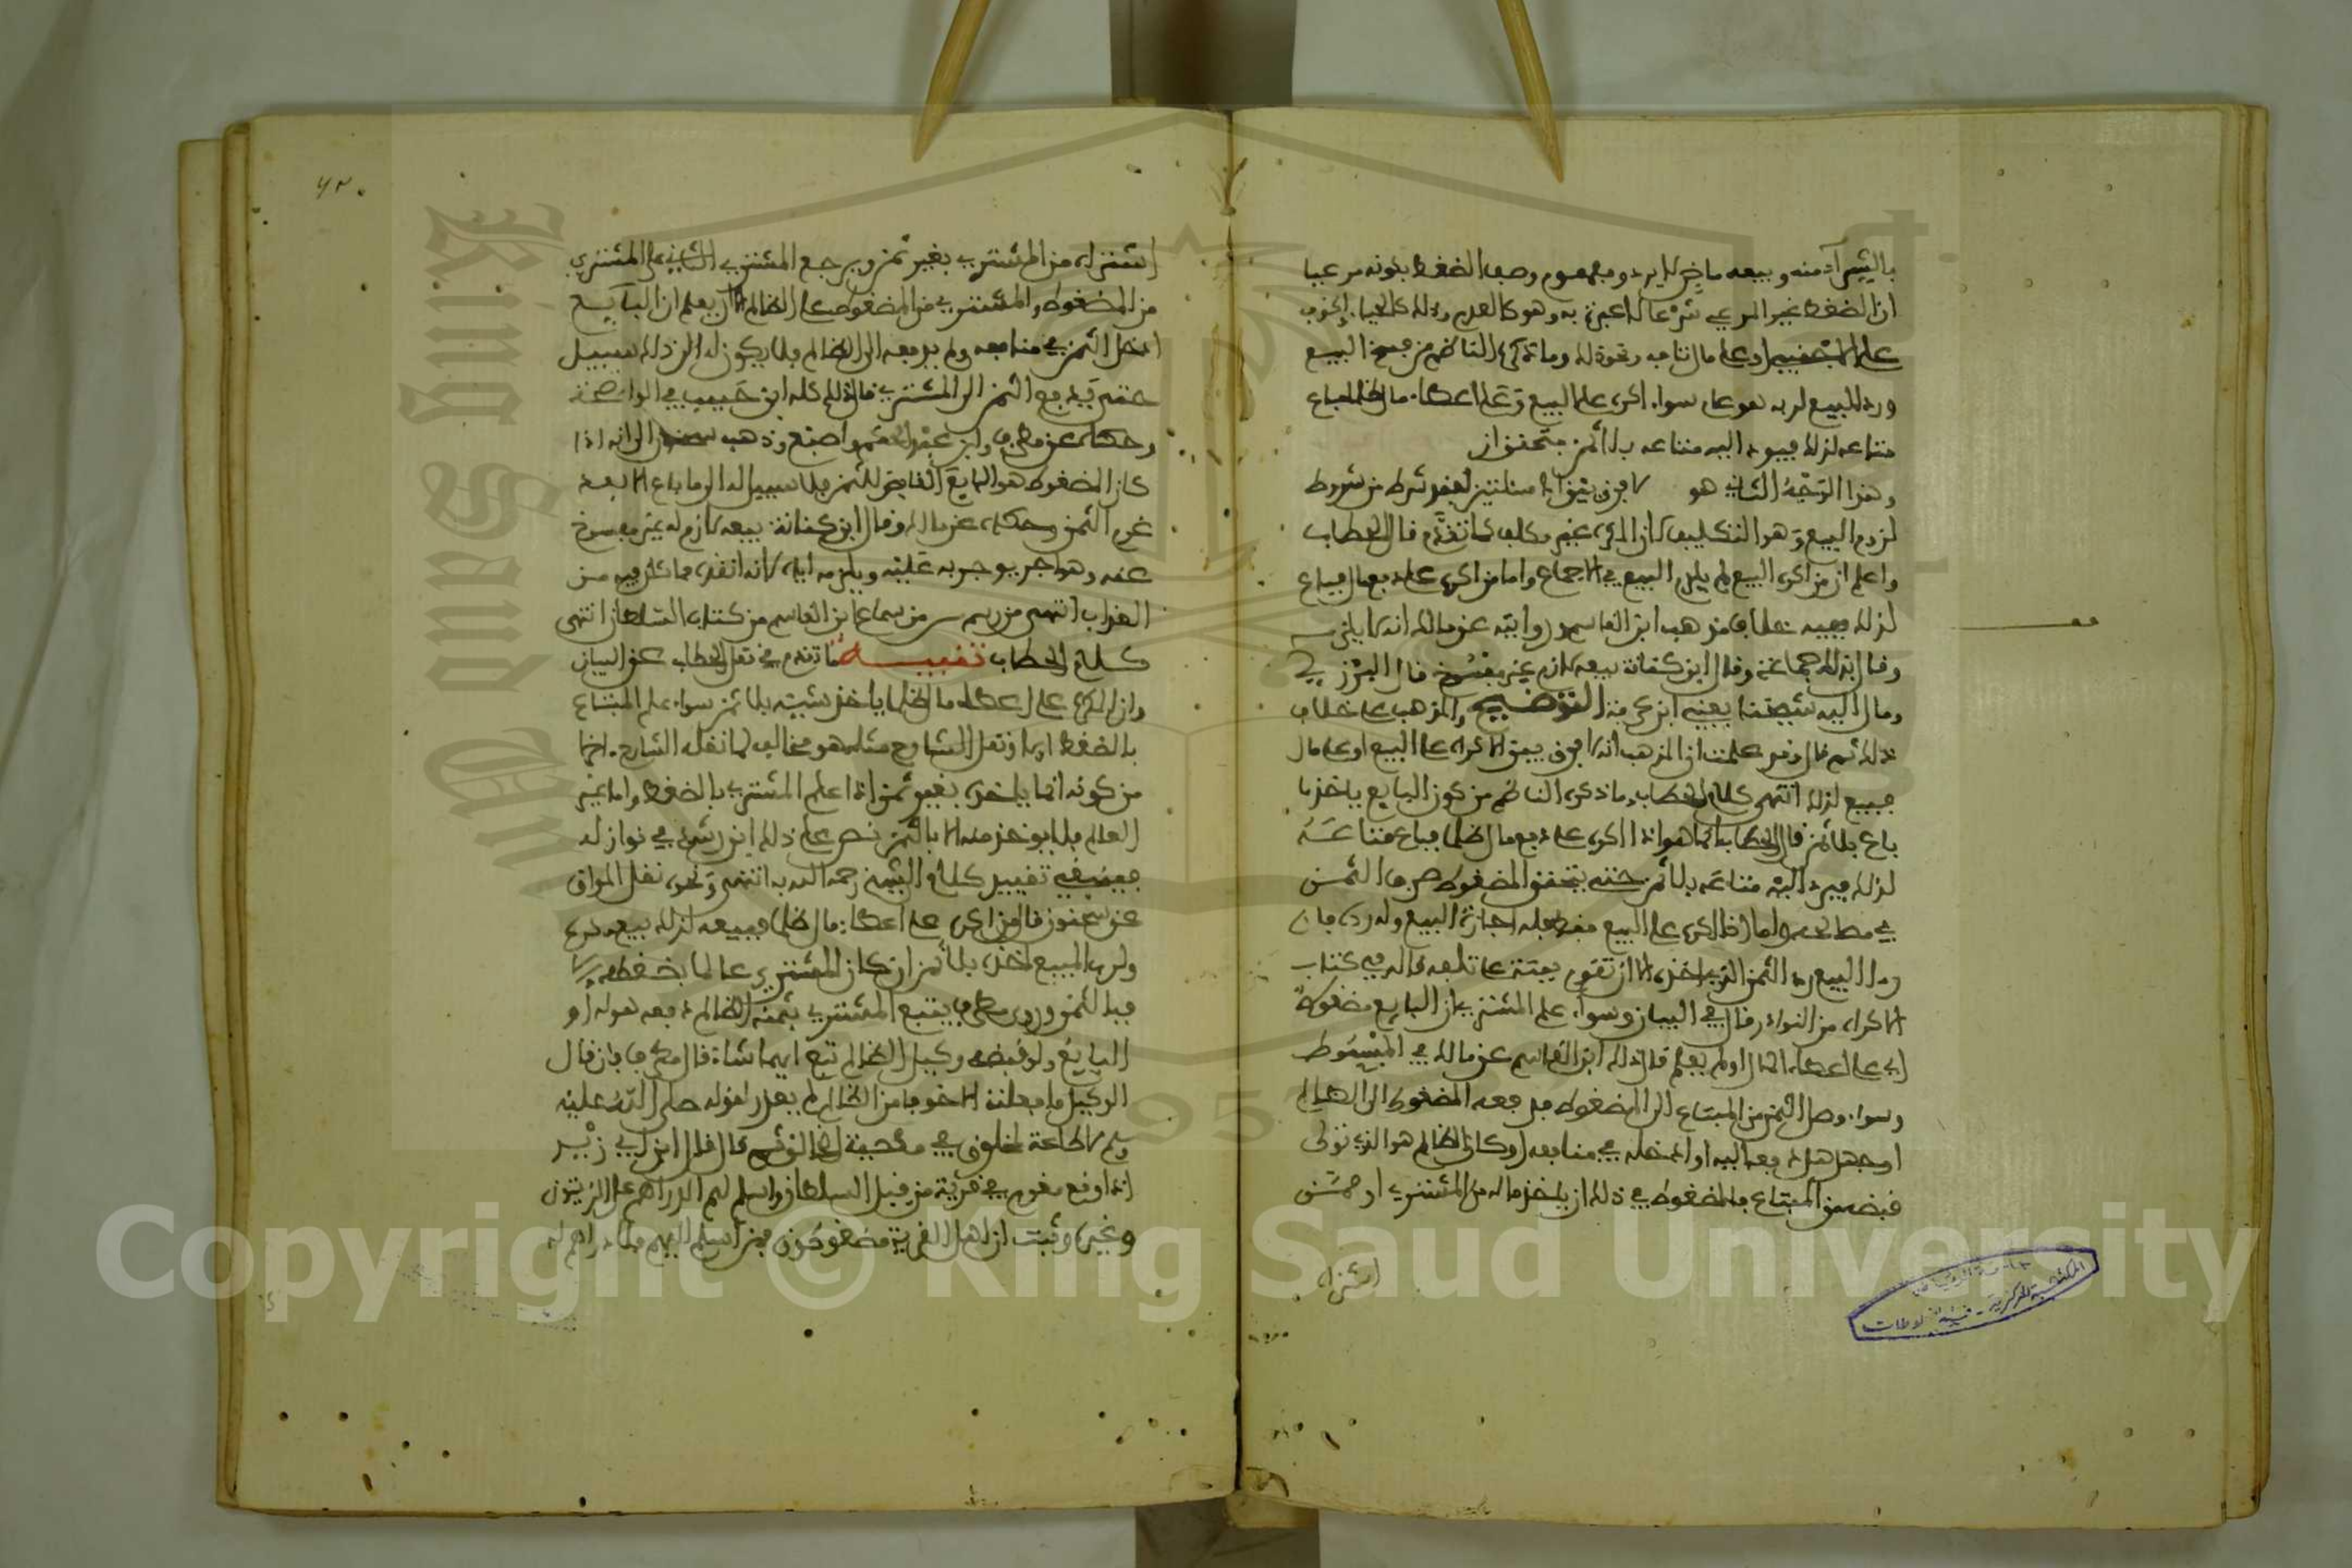 بالشراء منه وبيعه ماض لا يرد ومفهوم وصف الضغط بكونه مرعيا
ان الضغط غير المرعي شرعا لا عبرة به وهو كالعدم وذلك كالحياء
على المبيع او على مال ونحوه له وما ذكره الناظم من فسخ البيع
ورد المبيع لربه هو على سواء اكره على البيع وعلى اعطاء مال ظلما فباع
متاعه لذلك فيرد اليه متاعه بلا ثمن
وهذا الوجه الثاني هو لا فرق بين المسئلتين لفقد شرط من شروط
لزوم البيع وهو التكليف لان المكره غير مكلف كما تقدم قال الحطاب
واعلم ان من اكره على البيع لم يلزمه البيع في الاجماع واما من اكره على دفع مال فباع
لذلك ففيه خلاف مذهب ابن القاسم وروايته عن مالك انه لا يلزمه
وقال بذلك جماعة وقال ابن كنانة بيعه لازم غير مفسوخ قال البرزلي
ومال اليه شيخنا يعني ابن عرفة التوضيح والمذهب على خلاف
ذلك ثم قال وقد علمت ان المذهب انه لا فرق بين الاكراه على البيع او على مال
فيبيع لذلك انتهى كلام الحطاب وما ذكره الناظم من كون البايع ياخذ ما
باع بلا ثمن قال الحطاب انما هو اذا اكره على دفع مال ظلما فباع متاعه
لذلك فيرد اليه متاعه بلا ثمن حتى يتحقق المضغوط صرف الثمن
في مصالحه واما اذا اكره على البيع فقط فله اجازة البيع وله رده فان
رد البيع رد الثمن الذي اخذه الا ان تقوم بينة على تلفه قاله في كتاب
الاكراه من النوادر قال في البيان وسواء علم المشتري ان البايع مضغوط
اي على اعطاء المال او لم يعلم قال ذلك ابن القاسم عن مالك في المبسوط
وسواء وصل الثمن من المبتاع الى المضغوط فدفعه المضغوط الى الظالم
او جهل هل دفعه اليه او ادخله في منافعه او كان الظالم هو الذي تولى
قبضه من المبتاع فللمضغوط في ذلك ان ياخذ ماله من المشتري او ممن
اشتراه
٤٢٠
اشتراه من المشتري بغير ثمن ويرجع المشتري الثاني على المشتري
من المضغوط والمشتري من المضغوط على الظالم الا ان يعلم ان البايع
ادخل الثمن في منافعه ولم يدفعه الى الظالم فلا يكون له الى ذلك سبيل
حتى يدفع الثمن الى المشتري قال ذلك كله ابن حبيب في الواضحة
وحكاه عن مطرف وابن عبد الحكم واصبغ وذهب سحنون الى انه اذا
كان المضغوط هو البايع القابض للثمن فلا سبيل له الى ما باع الا بعد
غرم الثمن وحكاه عن مالك وقال ابن كنانة بيعه لازم له غير مفسوخ
عنه وهو اجر يوجر به عليه ويلزمه اياه لانه انقذه مما كان فيه من
العذاب انتهى من رسم من سماع ابن القاسم من كتاب السلطان انتهى
كلام الحطاب تنبيه ما تقدم في نقل الحطاب عن البيان
وان المكره على اعطاء مال ظلما ياخذ شيئه بلا ثمن سواء علم المبتاع
بالضغط ام لا ونقل الشارح مثله هو مخالف لما نقله الشارح
من كونه انما ياخذه بغير ثمن اذا علم المشتري بالضغط واما غير
العالم فلا يوخذ منه الا بالثمن نص على ذلك ابن رشد في نوازله
فينبغي تقييد كلام الشيخ رحمه الله به انتهى ونحوه نقل المواق
عن سحنون قال من اكره على اعطاء مال ظلما فبيعه لذلك بيع مكره
ولرب المبيع اخذه بلا ثمن ان كان المشتري عالما بضغطه والا
فبالثمن وروى مطرف يتبع المشتري بثمنه الظالم دفعه هو له او
البايع ولو قبضه وكيل الظالم تبع ايهما شاء قال مطرف فان قال
الوكيل ما فعلته الا خوفا من الظالم لم يعذر لقوله صلى الله عليه
وسلم لا طاعة لمخلوق في معصية الخالق ثم قال قال ابن ابي زيد
اذا وقع مغرم في قرية من قبل السلطان واسلم لهم الدراهم على الزيتون
وغيره وثبت ان اهل القرية مضغوطون فمن اسلم اليهم فلا دراهم له
Copyright © King Saud University
King Saud University
1957